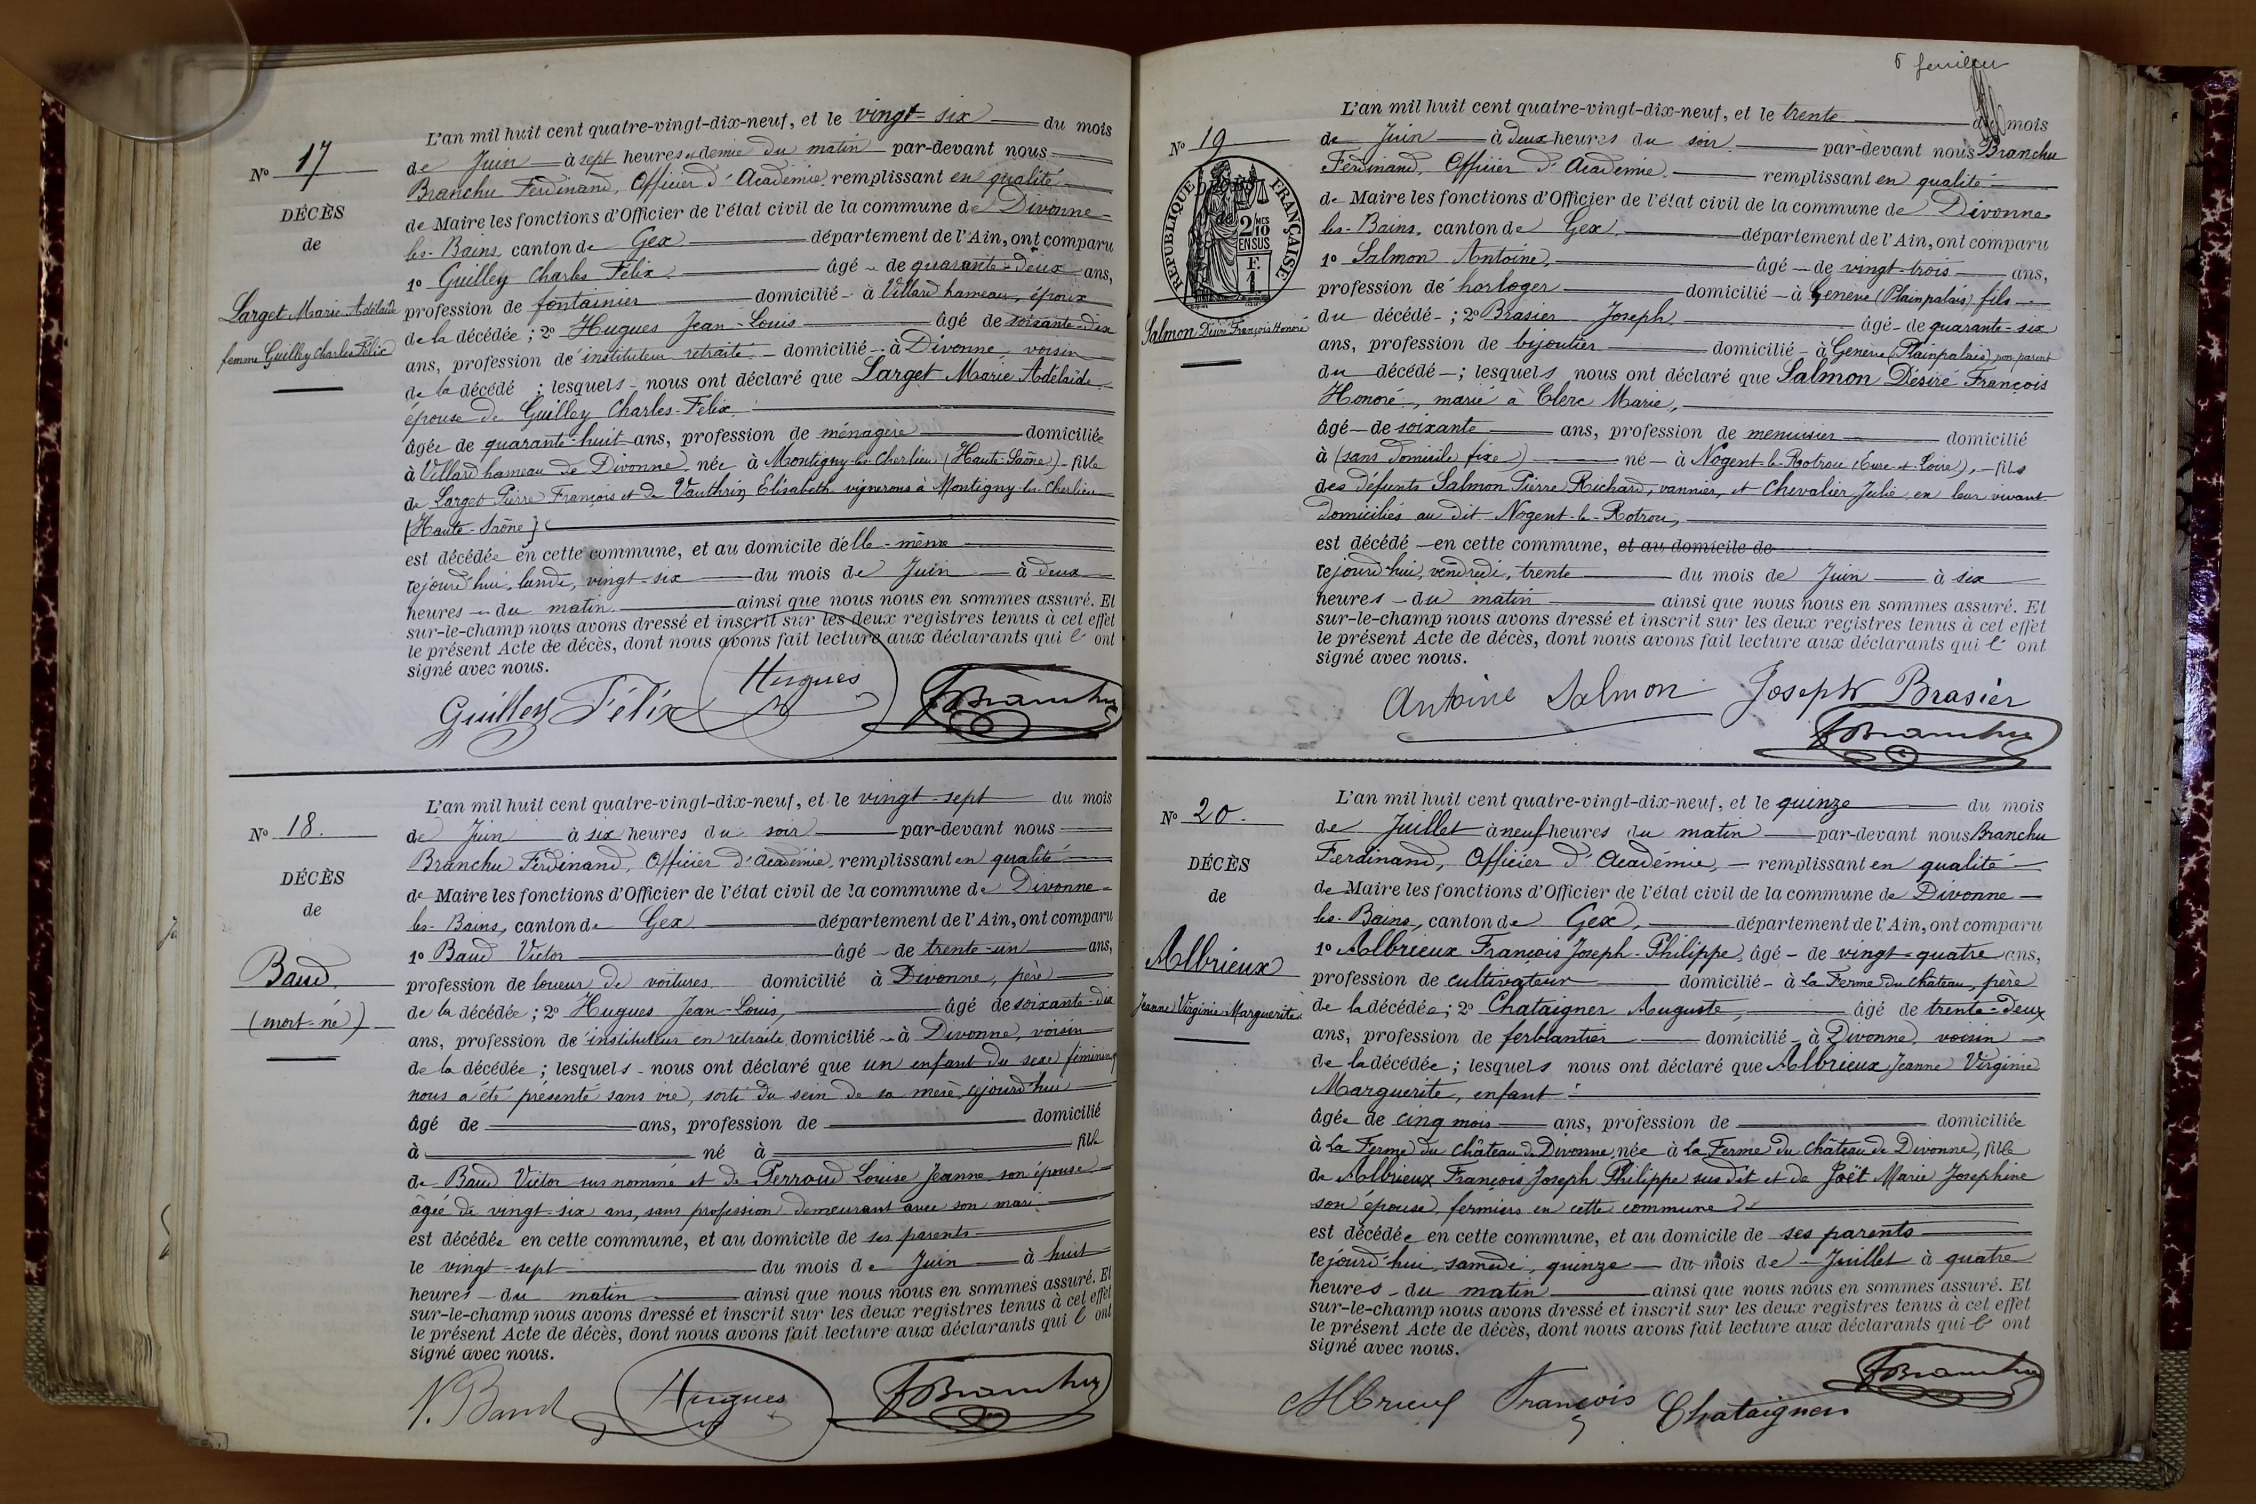 N° 17
DÉCÈS
de
Larget Marie Adélaïde
femme Guilley Charles Félix
L'an mil huit cent quatre-vingt-dix-neuf, et le vingt-six du mois
de Juin à sept heures et demie du matin par-devant nous
Branchu Ferdinand, Officier d'Académie, remplissant en qualité
de Maire les fonctions d'Officier de l'état civil de la commune de Divonne-
les-Bains, canton de Gex département de l'Ain, ont comparu
1° Guilley Charles Félix âgé de quarante-deux ans,
profession de fontainier domicilié à Villard hameau, époux
de la décédée ; 2° Hugues Jean-Louis âgé de soixante-dix
ans, profession de instituteur retraité domicilié à Divonne, voisin
de la décédé ; lesquels nous ont déclaré que Larget Marie Adélaïde
épouse de Guilley Charles-Félix
âgée de quarante-huit ans, profession de ménagère domiciliée
à Villard hameau de Divonne née à Montigny-les-Cherlieu (Haute-Saône) fille
de Larget Pierre François et de Vauthrin Elisabeth vignerons à Montigny-les-Cherlieu
(Haute-Saône)
est décédée en cette commune, et au domicile d'elle-même
cejourd'hui, lundi, vingt-six du mois de Juin à deux
heures du matin ainsi que nous nous en sommes assuré. Et
sur-le-champ nous avons dressé et inscrit sur les deux registres tenus à cet effet
le présent Acte de décès, dont nous avons fait lecture aux déclarants qui l'ont
signé avec nous.
Guilley Félix Hugues FBranchu
N° 18.
DÉCÈS
de
Baud
(mort-né)
L'an mil huit cent quatre-vingt-dix-neuf, et le vingt-sept du mois
de Juin à six heures du soir par-devant nous
Branchu Ferdinand, Officier d'académie, remplissant en qualité
de Maire les fonctions d'Officier de l'état civil de la commune de Divonne-
les-Bains, canton de Gex département de l'Ain, ont comparu
1° Baud Victor âgé de trente-un ans,
profession de loueur de voitures domicilié à Divonne, père
de la décédée ; 2° Hugues Jean-Louis, âgé de soixante-dix
ans, profession de instituteur en retraite, domicilié à Divonne, voisin
de la décédée ; lesquels nous ont déclaré que un enfant du sexe féminin
nous a été présenté sans vie, sorti du sein de sa mère, cejourd'hui
âgé de ans, profession de domicilié
à né à fille
de Baud Victor sus nommé et de Perroud Louise Jeanne son épouse
âgée de vingt-six ans, sans profession demeurant avec son mari
est décédée en cette commune, et au domicile de ses parents
le vingt-sept du mois de Juin à huit
heures du matin ainsi que nous nous en sommes assuré. Et
sur-le-champ nous avons dressé et inscrit sur les deux registres tenus à cet effet
le présent Acte de décès, dont nous avons fait lecture aux déclarants qui l'ont
signé avec nous.
V. Baud Hugues FBranchu
N° 19
RÉPUBLIQUE FRANÇAISE
2/10 MES
EN SUS
F.
1
Salmon Désiré François Honoré
L'an mil huit cent quatre-vingt-dix-neuf, et le trente du mois
de Juin à deux heures du soir par-devant nous Branchu
Ferdinand, Officier d'Académie remplissant en qualité
de Maire les fonctions d'Officier de l'état civil de la commune de Divonne
les-Bains, canton de Gex département de l'Ain, ont comparu
1° Salmon Antoine, âgé de vingt-trois ans,
profession de horloger domicilié à Genève (Plainpalais) fils
du décédé ; 2° Brasier Joseph âgé de quarante-six
ans, profession de bijoutier domicilié à Genève (Plainpalais) non parent
du décédé ; lesquels nous ont déclaré que Salmon Désiré François
Honoré, marié à Clerc Marie,
âgé de soixante ans, profession de menuisier domicilié
à (sans domicile fixe) né à Nogent-le-Rotrou (Eure-et-Loire), fils
des défunts Salmon Pierre Richard, vannier, et Chevalier Julie, en leur vivant
domiciliés au dit Nogent-le-Rotrou,
est décédé en cette commune, et au domicile de
cejourd'hui, vendredi, trente du mois de Juin à six
heures du matin ainsi que nous nous en sommes assuré. Et
sur-le-champ nous avons dressé et inscrit sur les deux registres tenus à cet effet
le présent Acte de décès, dont nous avons fait lecture aux déclarants qui l'ont
signé avec nous.
Antoine Salmon Joseph Brasier
FBranchu
N° 20.
DÉCÈS
de
Albrieux
Jeanne Virginie Marguerite
L'an mil huit cent quatre-vingt-dix-neuf, et le quinze du mois
de Juillet à neuf heures du matin par-devant nous Branchu
Ferdinand, Officier d'Académie, remplissant en qualité
de Maire les fonctions d'Officier de l'état civil de la commune de Divonne
les-Bains, canton de Gex, département de l'Ain, ont comparu
1° Albrieux François Joseph-Philippe, âgé de vingt-quatre ans,
profession de cultivateur domicilié à La Ferme du Château, père
de la décédée ; 2° Chataigner Auguste, âgé de trente-deux
ans, profession de ferblantier domicilié à Divonne, voisin
de la décédée ; lesquels nous ont déclaré que Albrieux Jeanne Virginie
Marguerite, enfant
âgée de cinq mois ans, profession de domiciliée
à La Ferme du Château de Divonne née à La Ferme du Château de Divonne, fille
de Albrieux François Joseph Philippe sus dit et de Joët Marie Josephine
son épouse, fermiers en cette commune
est décédée en cette commune, et au domicile de ses parents
cejourd'hui, samedi, quinze du mois de Juillet à quatre
heures du matin ainsi que nous nous en sommes assuré. Et
sur-le-champ nous avons dressé et inscrit sur les deux registres tenus à cet effet
le présent Acte de décès, dont nous avons fait lecture aux déclarants qui l'ont
signé avec nous.
Albrieux François Chataigner FBranchu